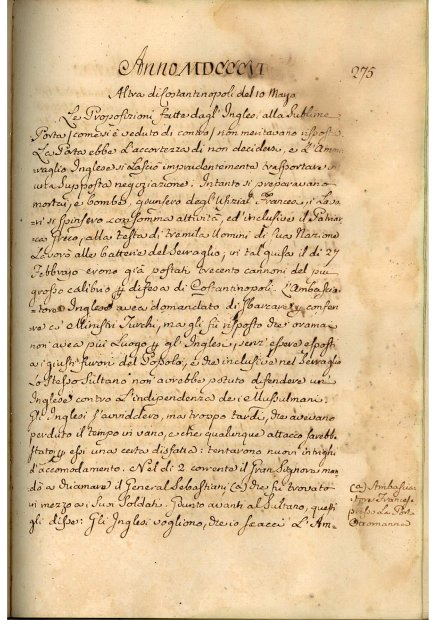 Anno MDCCCVI
275
Altra di Costantinopoli del 10 Mayo
Le Proposizioni fatte dagl' Inglesi alla Sublime
Porta (come si è veduto di contro) non meritavano risposta
La Porta ebbe l'accortezza di non decidersi, e L'Am=
=iraglio Inglese si lasciò imprudentemente trasportare in
una supposta negoziazione: Intanto si preparavano
mortai, e bombe, giunsero degl' Ufizial. Francesi, i Lavo=
ri si spinsero con somma attività, ed inclusive il Patriar=
ca Greco, alla testa di tremila Uomini di sua Nazione
Lavorò alle batterie del Serraglio, in tal guisa il di 27
Febbrajo erono già postati trecento cannoni del più
grosso calibro p difesa di Costantinopoli. L'Ambascia=
=tore Inglese avea domandato di sbarcare p conferi
re co' Ministri Turchi, ma gli fù risposto che oramai
non avea più Luogo p gl' Inglesi, senz' essere esposti
a i giusti furori del Popolo, e che inclusive nel Serraglio
Lo stesso Sultano non avrebbe potuto difendere un'
Inglese contro L'indipendenza de i Mussulmani:
Gli Inglesi s'avviddero, ma troppo tardi, che avevano
perduto il tempo in vano, e che qualunque attacco sarebbe
stato p essi una certa disfatta: tentarono nuovi intrighi
d'accomodamento. Nel dì 2 corrente il Gran Signore man=
dò a chiamare il General Sebastiani (a) che fu trovato
in mezzo a' suoi Soldati. Giunto avanti al Sultano, questi
gli disse: Gli Inglesi vogliono, che io scacci L'Am=
(a) Ambascia=
tore France=
se presso La Porta
Ottomanna